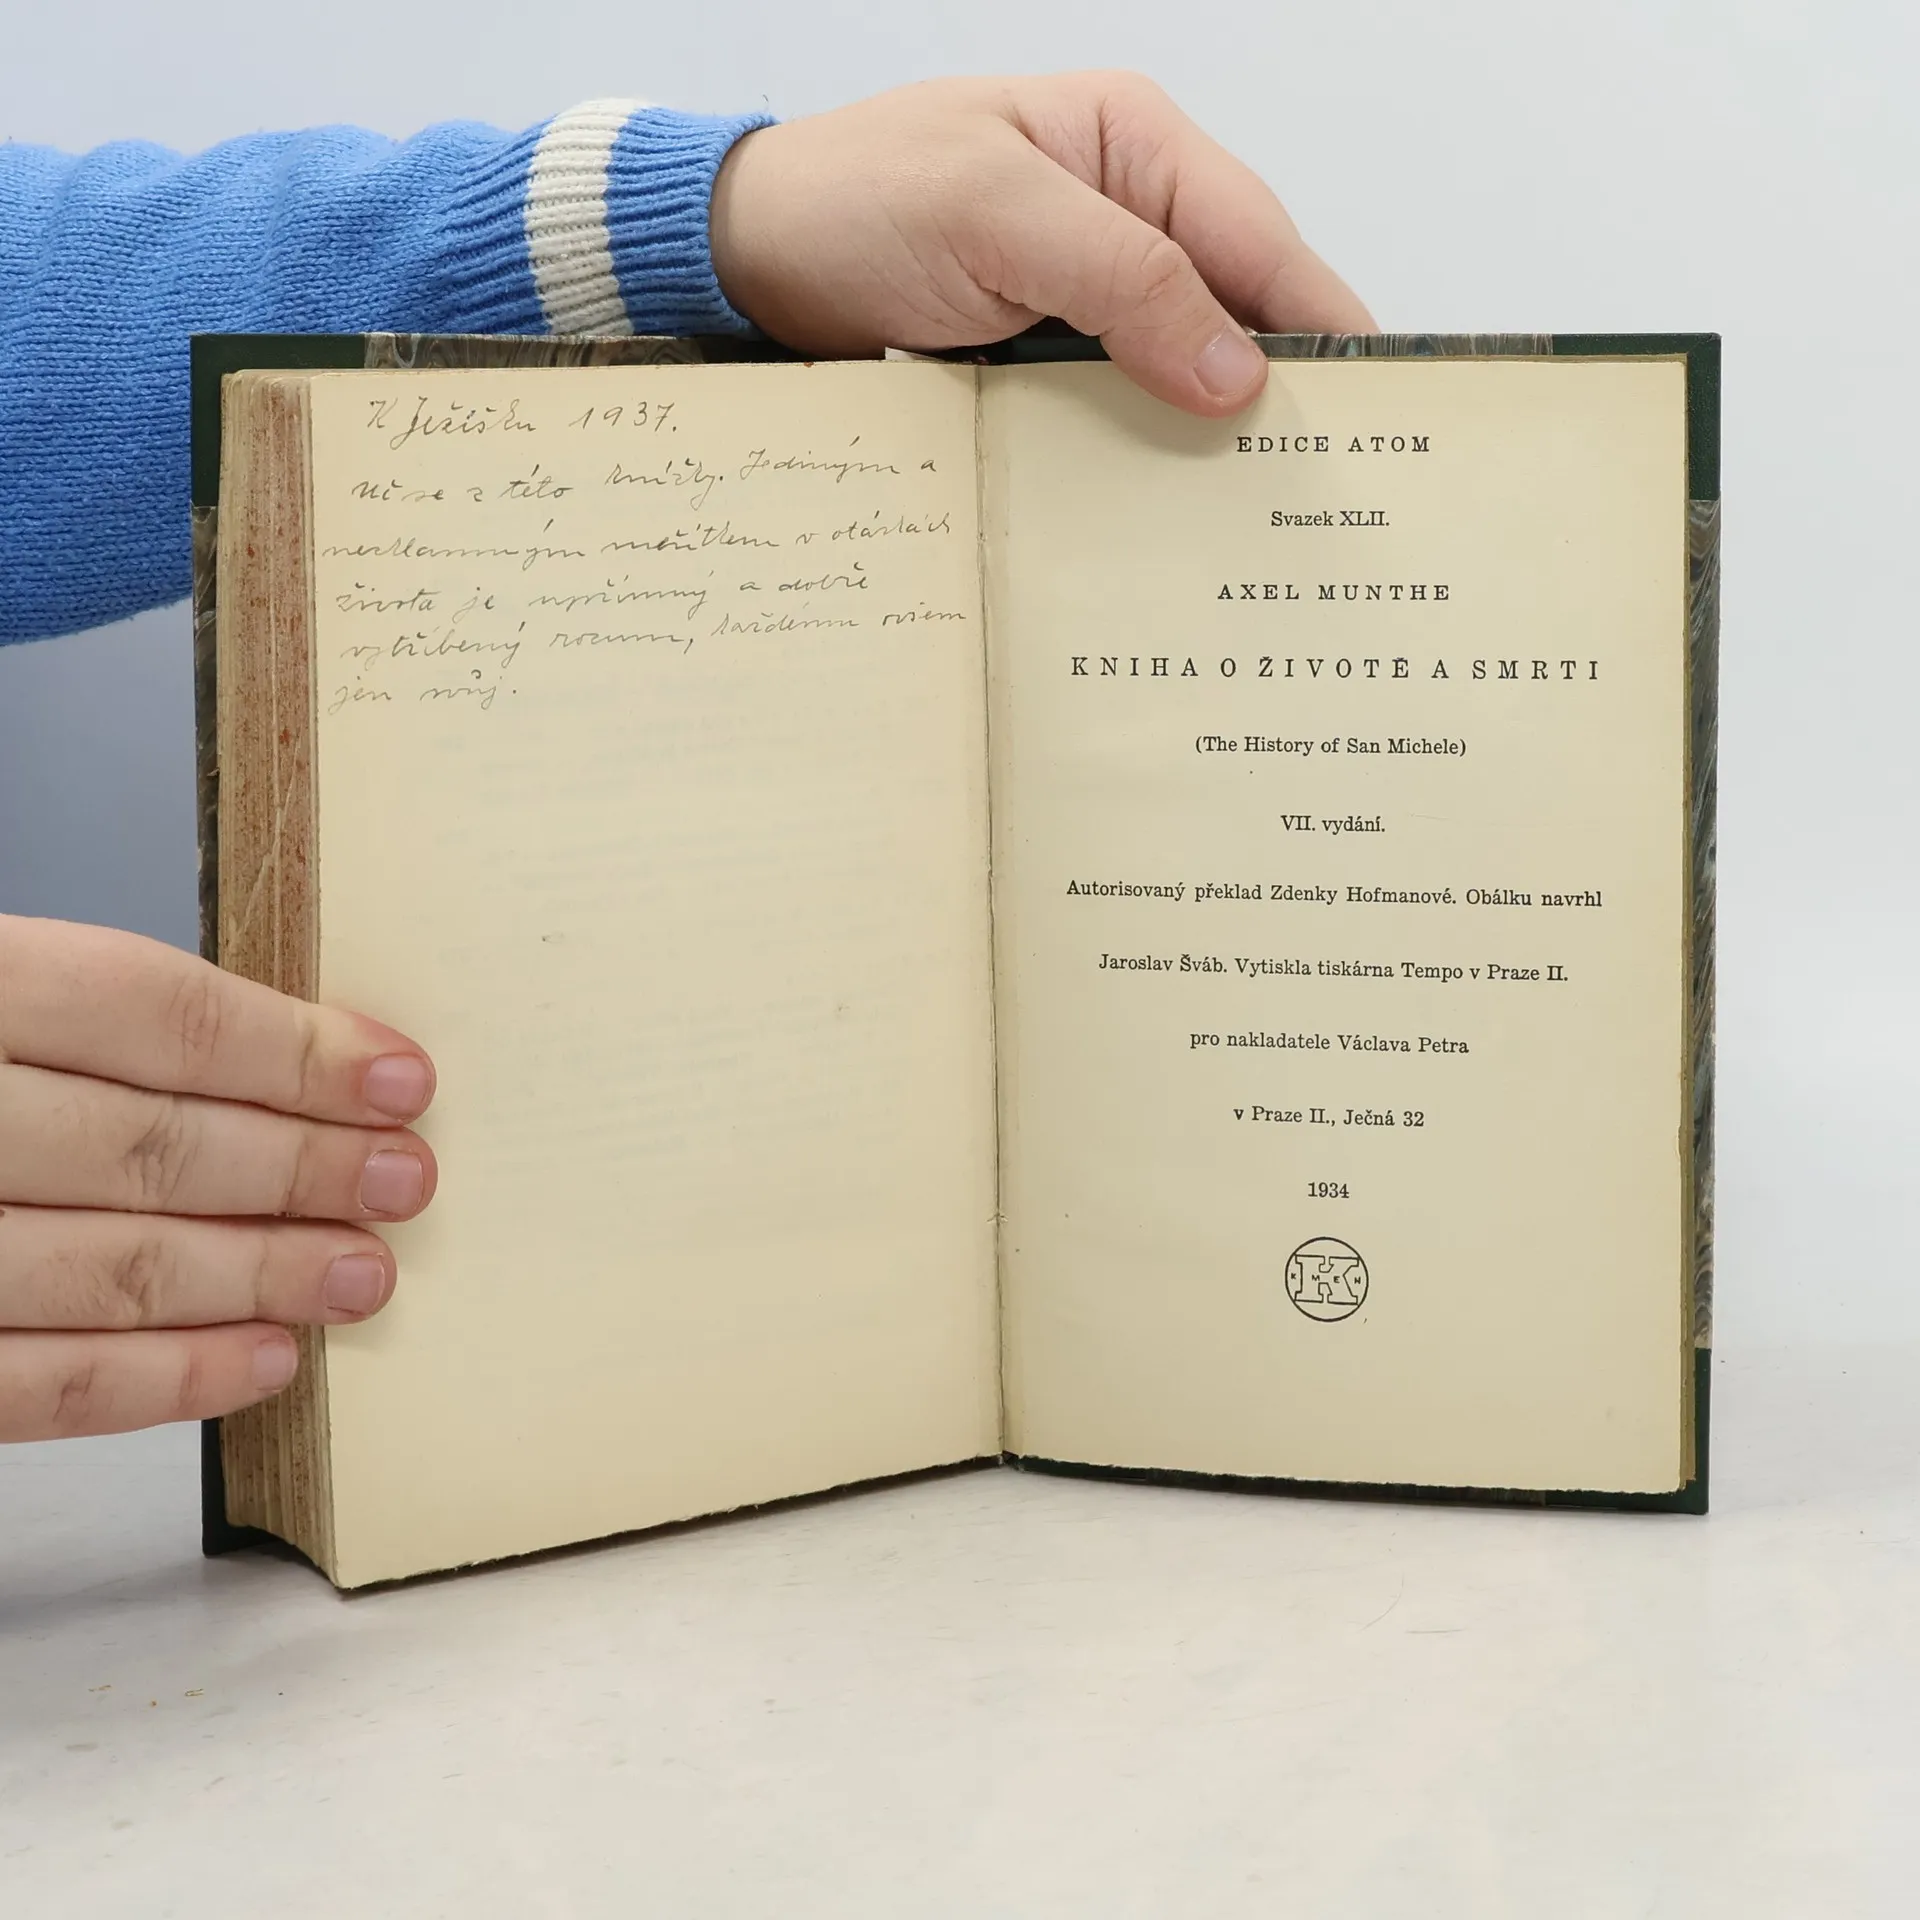 K Ježíšku 1937.
Uč se z této knížky. Jediným a
nezklamným měřítkem v otázkách
života je upřímný a dobře
vytříbený rozum, každému ovšem
jen svůj.
EDICE ATOM
Svazek XLII.
AXEL MUNTHE
KNIHA O ŽIVOTĚ A SMRTI
(The History of San Michele)
VII. vydání.
Autorisovaný překlad Zdenky Hofmanové. Obálku navrhl
Jaroslav Šváb. Vytiskla tiskárna Tempo v Praze II.
pro nakladatele Václava Petra
v Praze II., Ječná 32
1934
K M E N